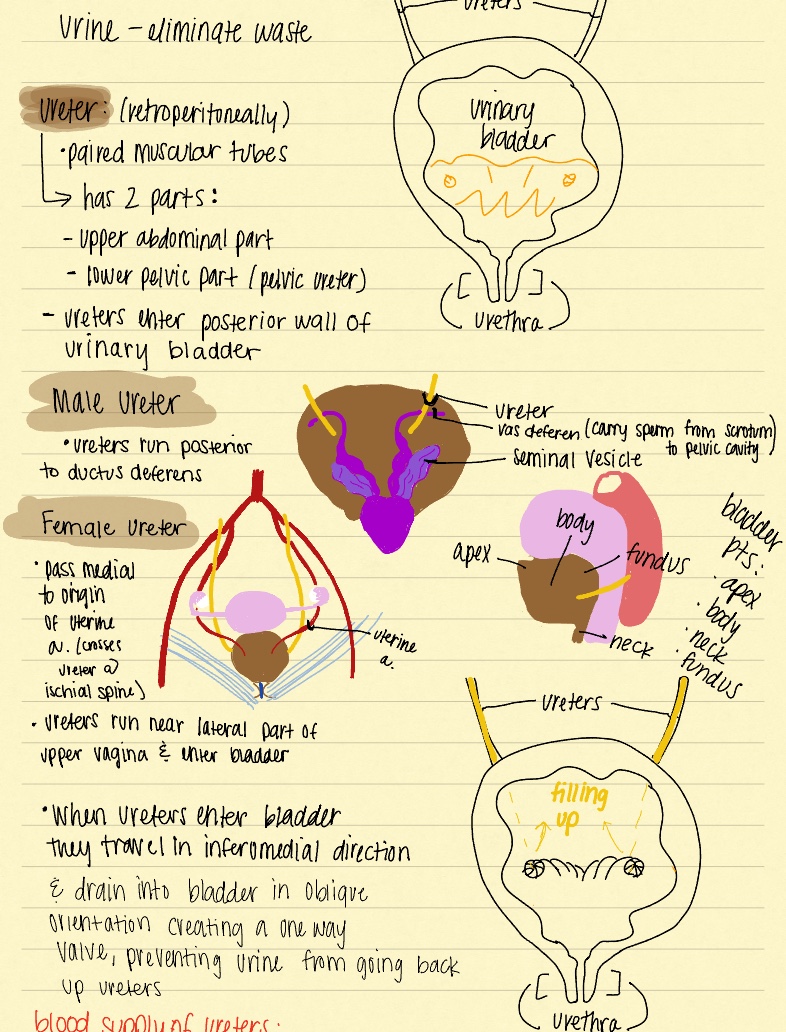 ureters
Urine - eliminate waste
urinary
bladder
Ureter: (retroperitoneally)
• paired muscular tubes
→ has 2 parts:
- upper abdominal part
- lower pelvic part (pelvic ureter)
- ureters enter posterior wall of
urinary bladder
urethra
Male Ureter
• ureters run posterior
to ductus deferens
ureter
vas deferen (carry sperm from scrotum
to pelvic cavity)
seminal vesicle
Female Ureter
• pass medial
to origin
of uterine
a. (crosses
ureter @
ischial spine)
uterine
a.
apex
body
fundus
neck
bladder
pts:
• apex
• body
• neck
• fundus
• ureters run near lateral part of
upper vagina & enter bladder
ureters
filling
up
• When ureters enter bladder
they travel in inferomedial direction
& drain into bladder in oblique
orientation creating a one way
valve, preventing urine from going back
up ureters
urethra
blood supply of ureters: